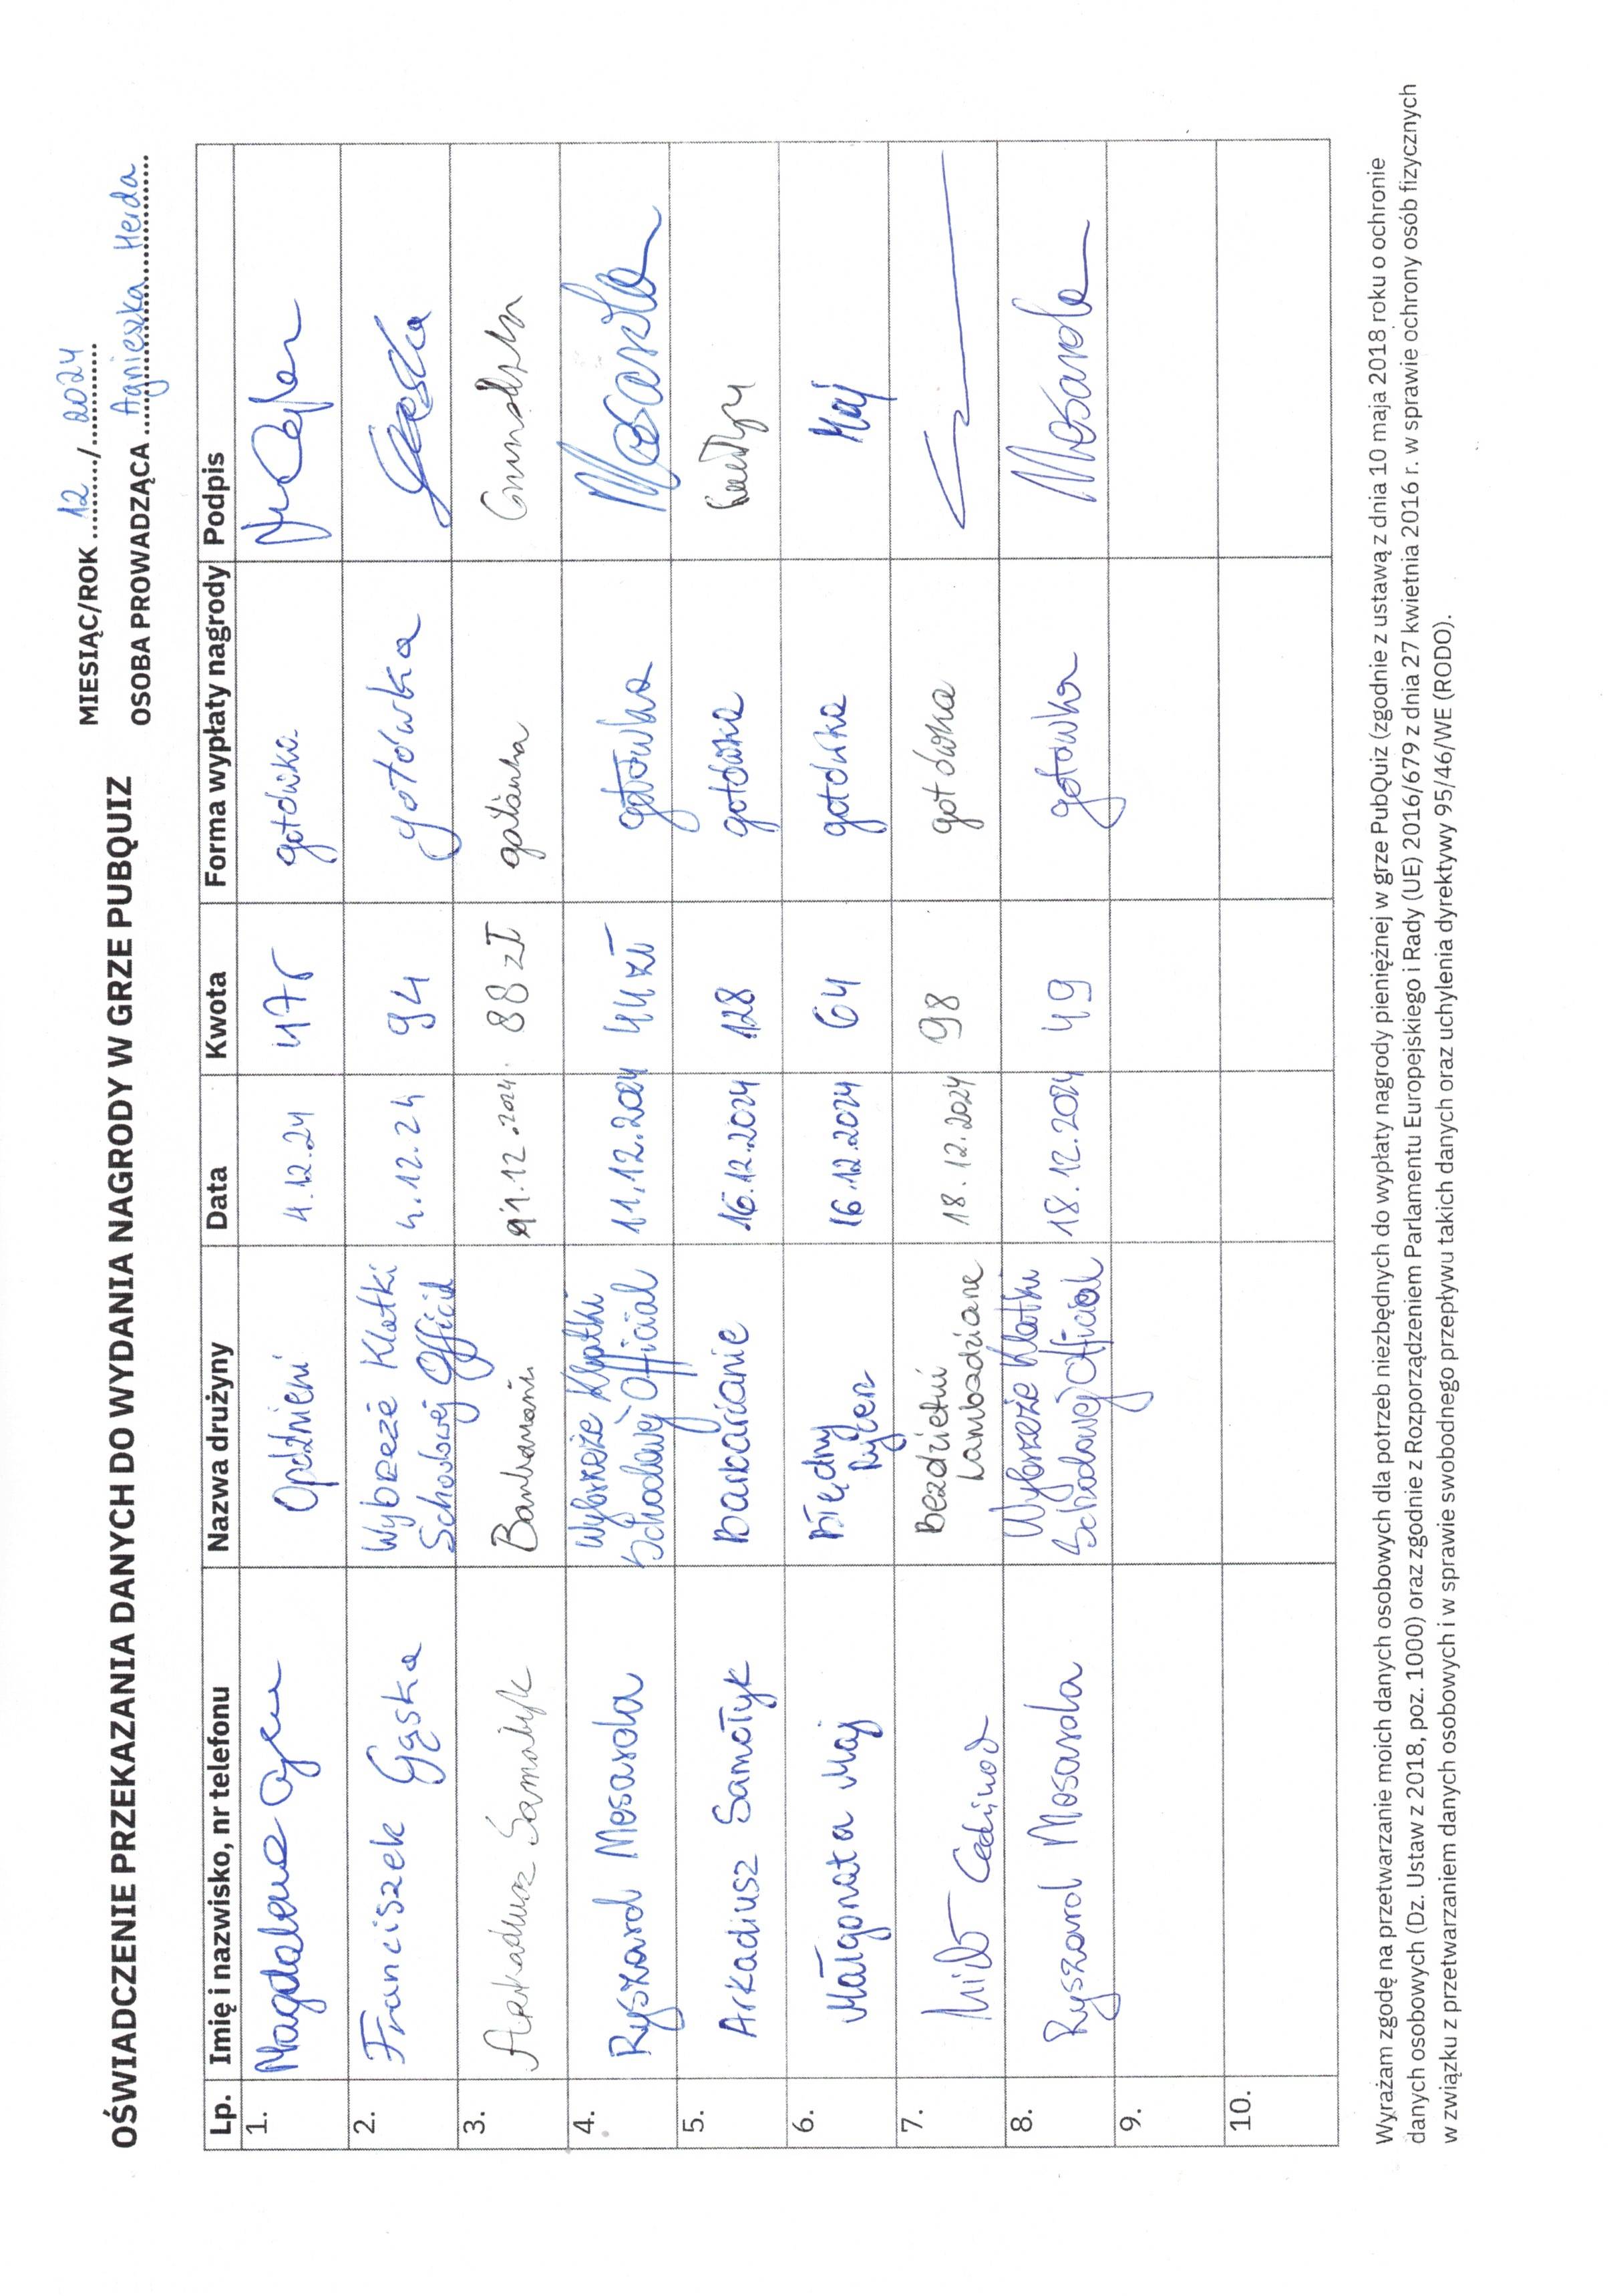 MIESIĄC/ROK 12 / 2024
OŚWIADCZENIE PRZEKAZANIA DANYCH DO WYDANIA NAGRODY W GRZE PUBQUIZ
OSOBA PROWADZĄCA Agnieszka Herda
Lp. Imię i nazwisko, nr telefonu Nazwa drużyny Data Kwota Forma wypłaty nagrody Podpis
1. Magdalena Opóźnieni 4.12.24 gotówka
2. Franciszek Gąska Wybrzeże Klatki Schodowej Official 4.12.24 94 gotówka Gąska
3. Arkadiusz Samołyk 11.12.2024 88 zł gotówka
4. Ryszard Mosarda Wybrzeże Klatki Schodowej Official 11.12.2024 44 zł gotówka Mosarda
5. Arkadiusz Samołyk Barbarianie 16.12.2024 128 gotówka
6. Małgorzata Maj Błędny Rycerz 16.12.2024 64 gotówka Maj
7. Bezdzietni Lambadziarze 18.12.2024 98 gotówka
8. Ryszard Mosarda Wybrzeże Klatki Schodowej Official 18.12.2024 49 gotówka Mosarda
9.
10.
Wyrażam zgodę na przetwarzanie moich danych osobowych dla potrzeb niezbędnych do wypłaty nagrody pieniężnej w grze PubQuiz (zgodnie z ustawą z dnia 10 maja 2018 roku o ochronie
danych osobowych (Dz. Ustaw z 2018, poz. 1000) oraz zgodnie z Rozporządzeniem Parlamentu Europejskiego i Rady (UE) 2016/679 z dnia 27 kwietnia 2016 r. w sprawie ochrony osób fizycznych
w związku z przetwarzaniem danych osobowych i w sprawie swobodnego przepływu takich danych oraz uchylenia dyrektywy 95/46/WE (RODO).